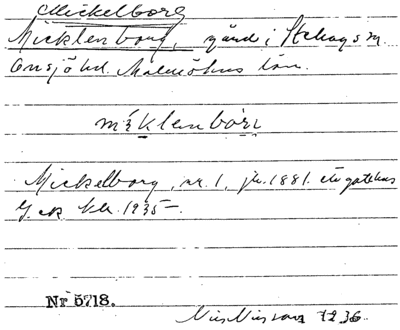 Mickelborg
Micklenborg, gård i Stehags sn.
Onsjö hd. Malmöhus län.
mɩklenbórɩ
Mickelborg, nr. 1, jb. 1881. ett gatehus
Nr 5718.
Nils Nilsson 1236